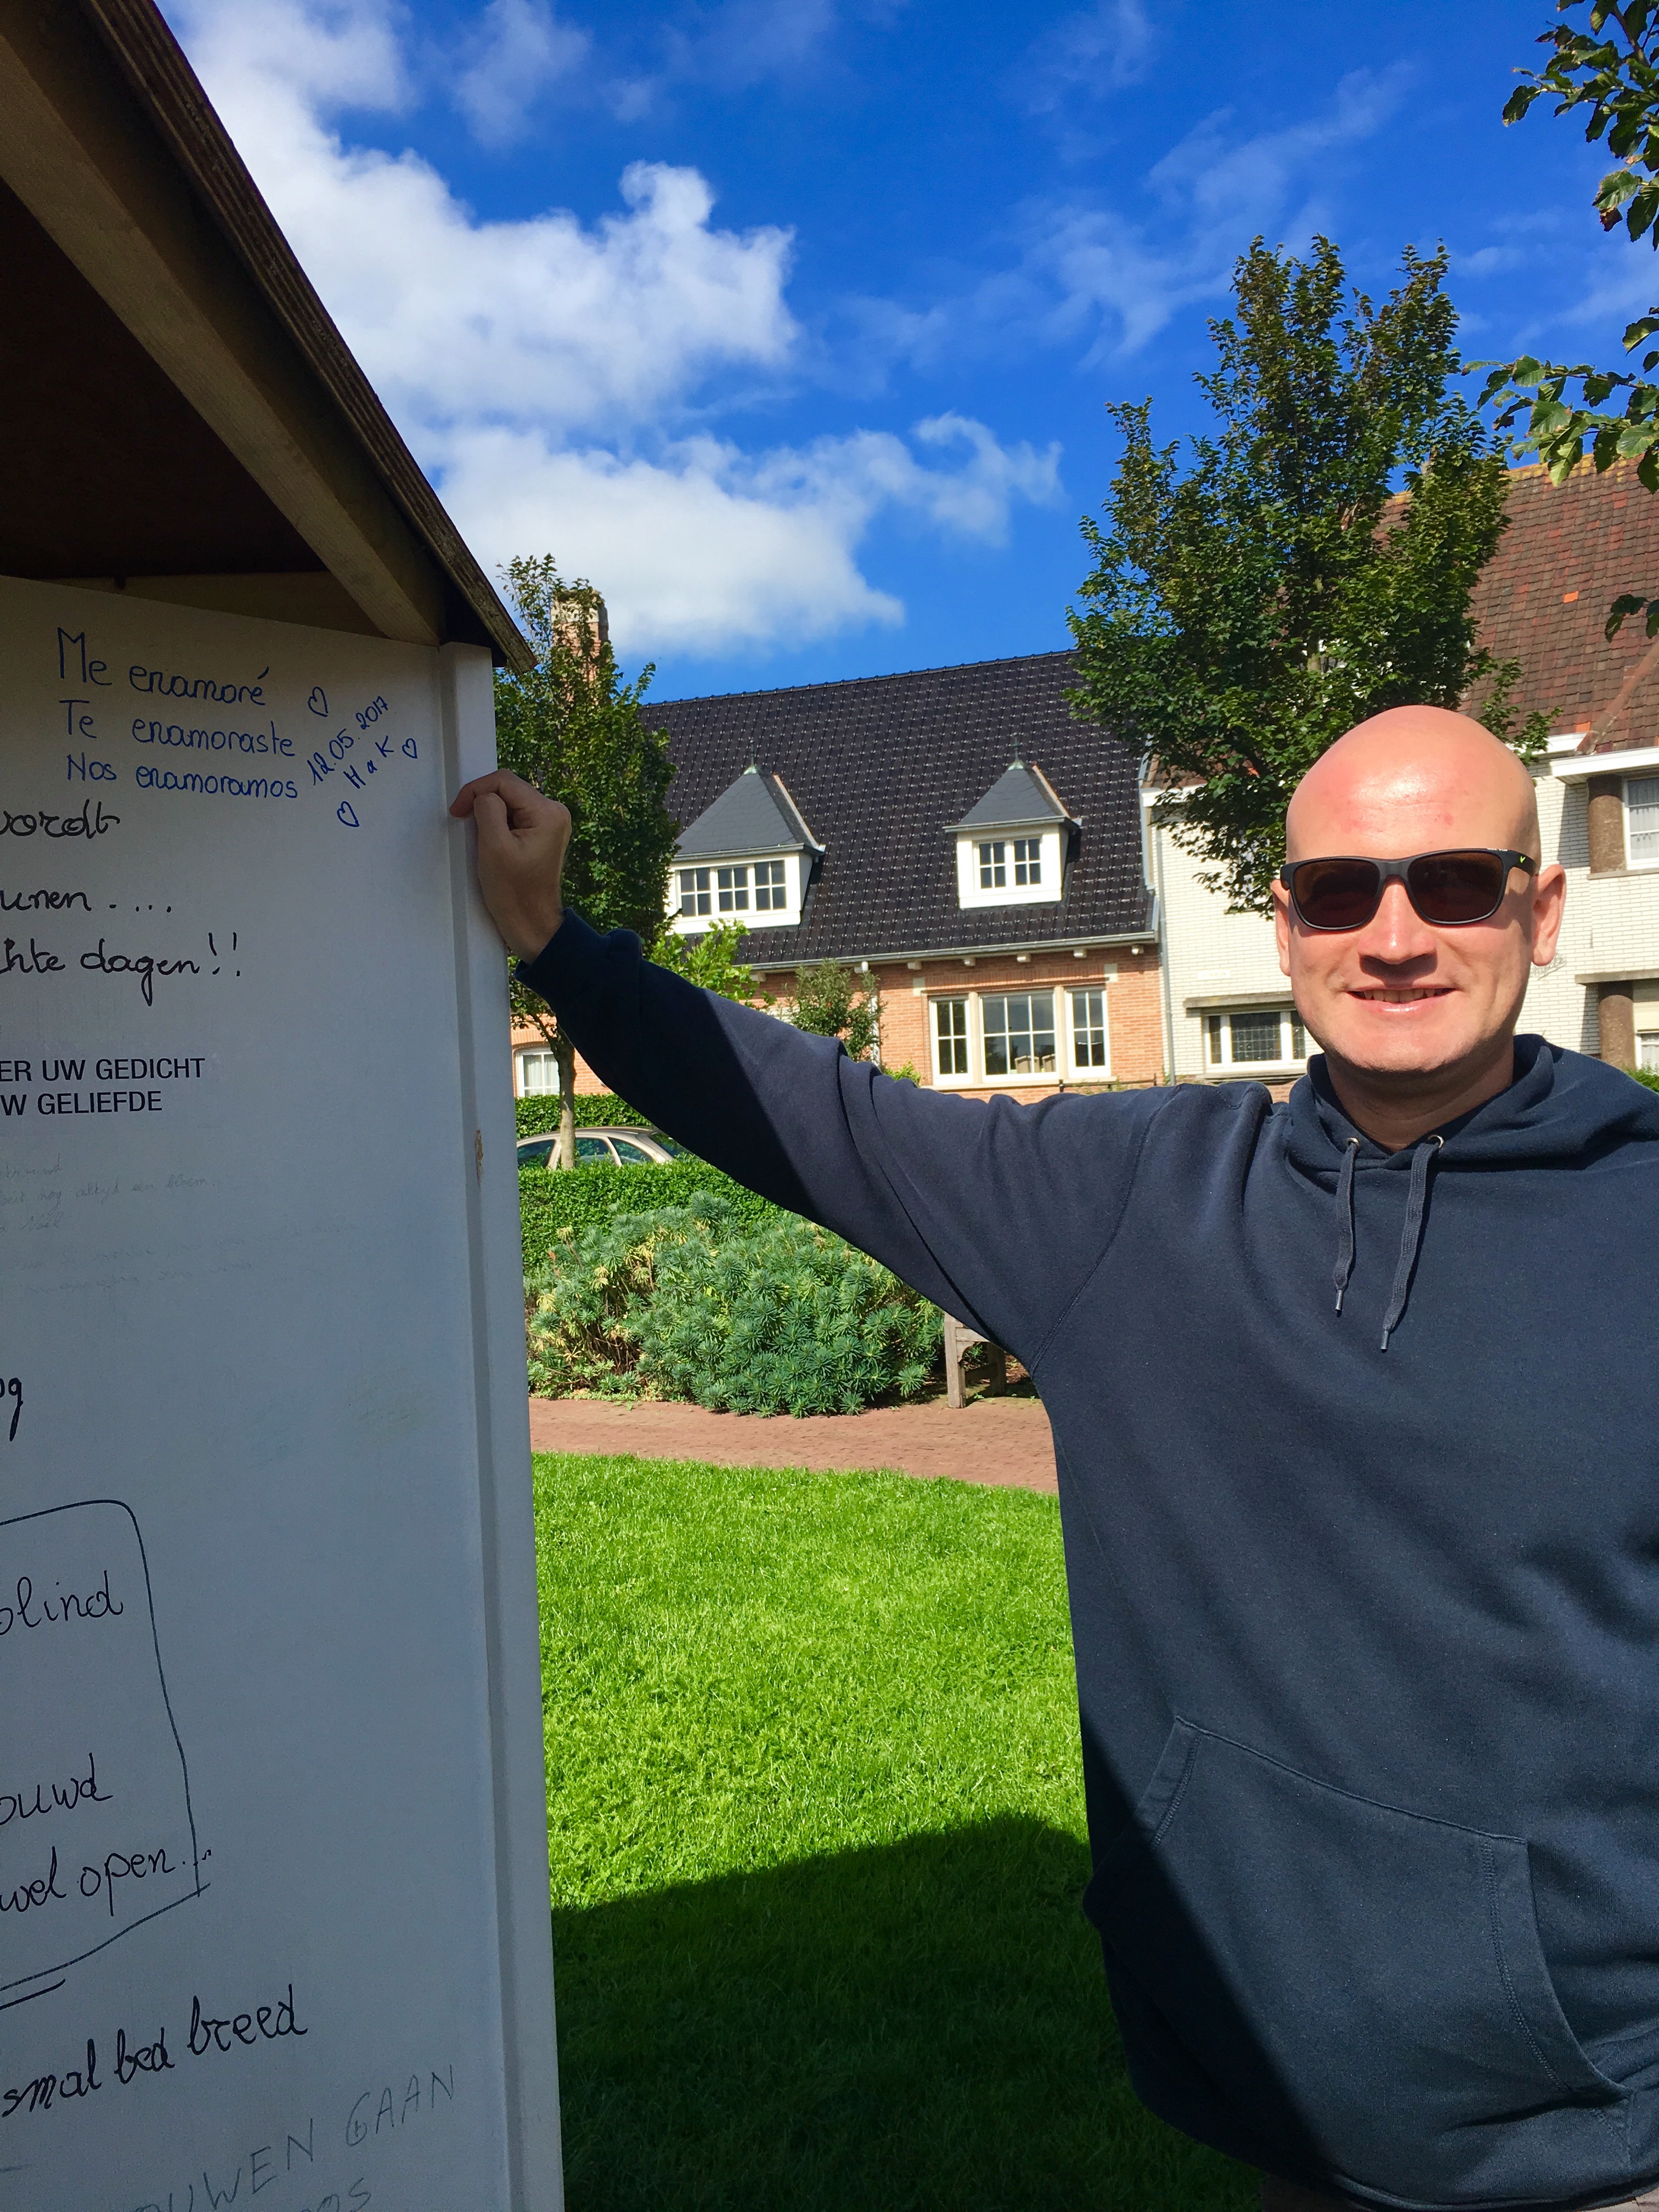 Me enamoré
Te enamoraste
Nos enamoramos
12.05.2017
H a K
wordt
unen....
hte dagen!!
ER UW GEDICHT
W GELIEFDE
og
blind
ouwd
wel open...
smal bed breed
OUWEN GAAN
OS